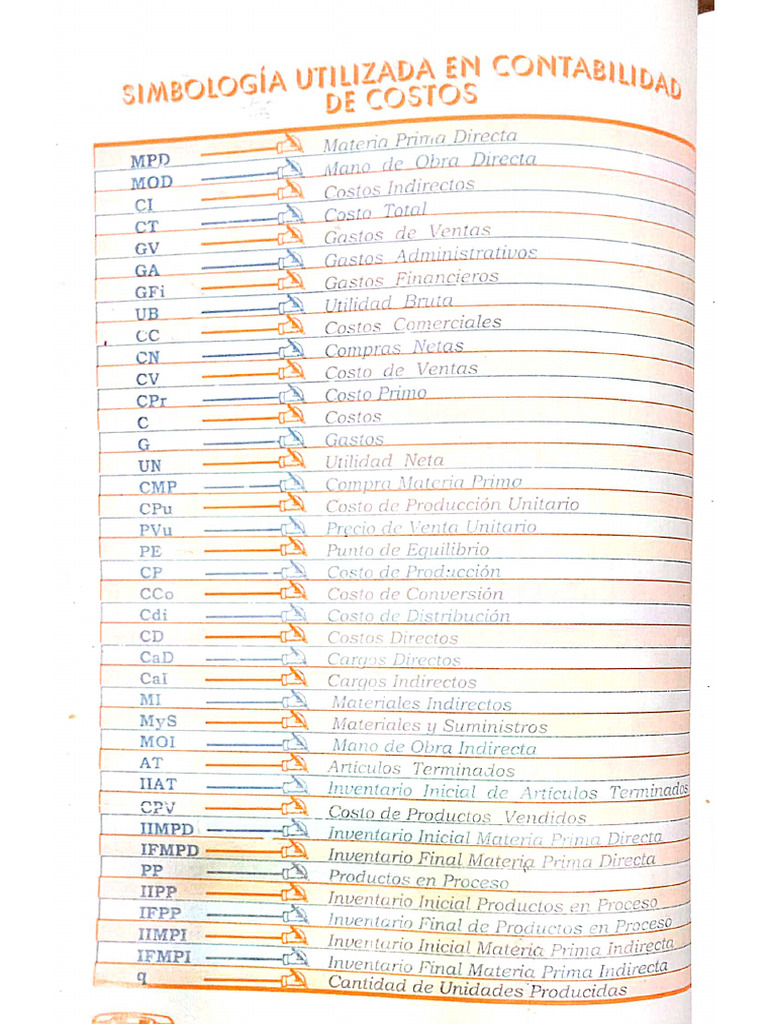 SIMBOLOGÍA UTILIZADA EN CONTABILIDAD
DE COSTOS
MPD Materia Prima Directa
MOD Mano de Obra Directa
CI Costos Indirectos
CT Costo Total
GV Gastos de Ventas
GA Gastos Administrativos
GFi Gastos Financieros
UB Utilidad Bruta
CC Costos Comerciales
CN Compras Netas
CV Costo de Ventas
CPr Costo Primo
C Costos
G Gastos
UN Utilidad Neta
CMP Compra Materia Primo
CPu Costo de Producción Unitario
PVu Precio de Venta Unitario
PE Punto de Equilibrio
CP Costo de Producción
CCo Costo de Conversión
Cdi Costo de Distribución
CD Costos Directos
CaD Cargos Directos
CaI Cargos Indirectos
MI Materiales Indirectos
MyS Materiales y Suministros
MOI Mano de Obra Indirecta
AT Artículos Terminados
IIAT Inventario Inicial de Artículos Terminados
CPV Costo de Productos Vendidos
IIMPD Inventario Inicial Materia Prima Directa
IFMPD Inventario Final Materia Prima Directa
PP Productos en Proceso
IIPP Inventario Inicial Productos en Proceso
IFPP Inventario Final de Productos en Proceso
IIMPI Inventario Inicial Materia Prima Indirecta
IFMPI Inventario Final Materia Prima Indirecta
q Cantidad de Unidades Producidas